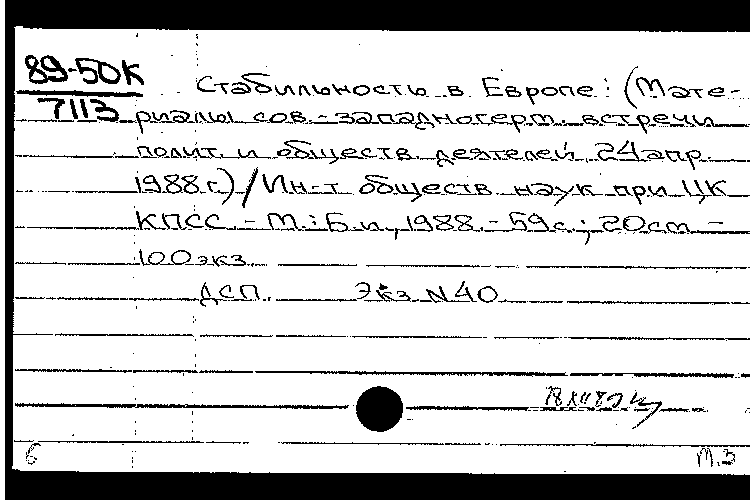 89-50К
7113
Стабильность в Европе: (Мате-
риалы сов.-западногерм. встречи
полит. и обществ. деятелей, 24 апр.
1988 г.) / Ин-т обществ. наук при ЦК
КПСС. - М.: Б.и., 1988. - 59 с.; 20 см. -
100 экз.
ДСП. Экз N 40
6
М.З